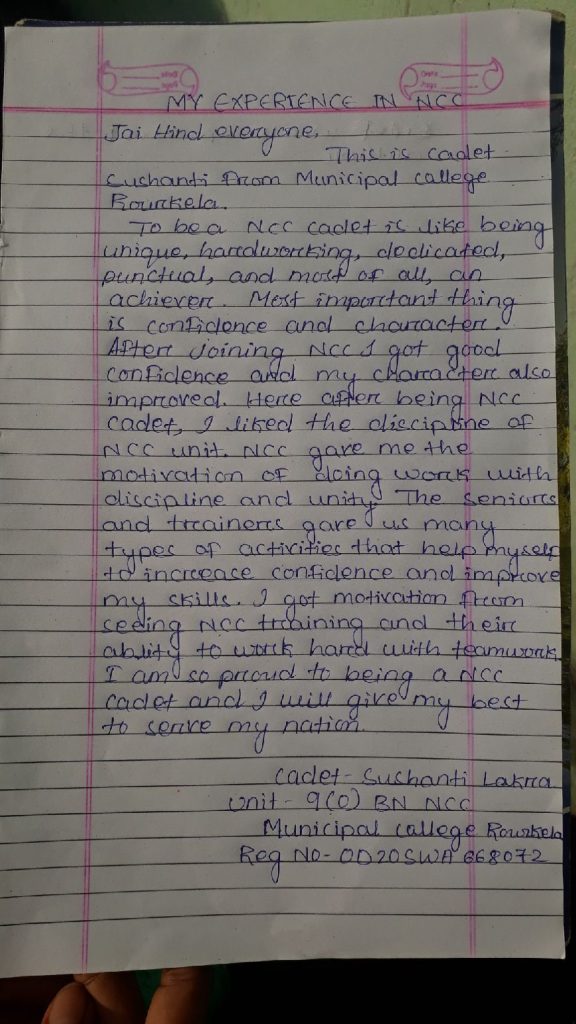 MY EXPERIENCE IN NCC
Jai Hind everyone,
This is cadet
Sushanti From Municipal college
Rourkela.
To be a NCC cadet is like being
unique, hardworking, dedicated,
punctual, and most of all, an
achiever. Most important thing
is confidence and character.
After joining NCC I got good
confidence and my character also
improved. Here after being NCC
cadet, I liked the discipline of
NCC unit. NCC gave me the
motivation of doing work with
discipline and unity. The seniors
and trainers gave us many
types of activities that help myself
to increase confidence and improve
my skills. I got motivation from
seeing NCC training and their
ability to work hard with teamwork.
I am so proud to being a NCC
cadet and I will give my best
to serve my nation.
Cadet - Sushanti Lakra
Unit - 9(O) BN NCC
Municipal college Rourkela
Reg NO - OD20SWA 668072